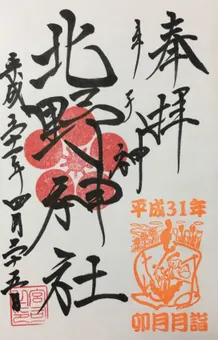 奉拝
北野神社
平成三十一年四月二十五日
平成31年
卯月月詣